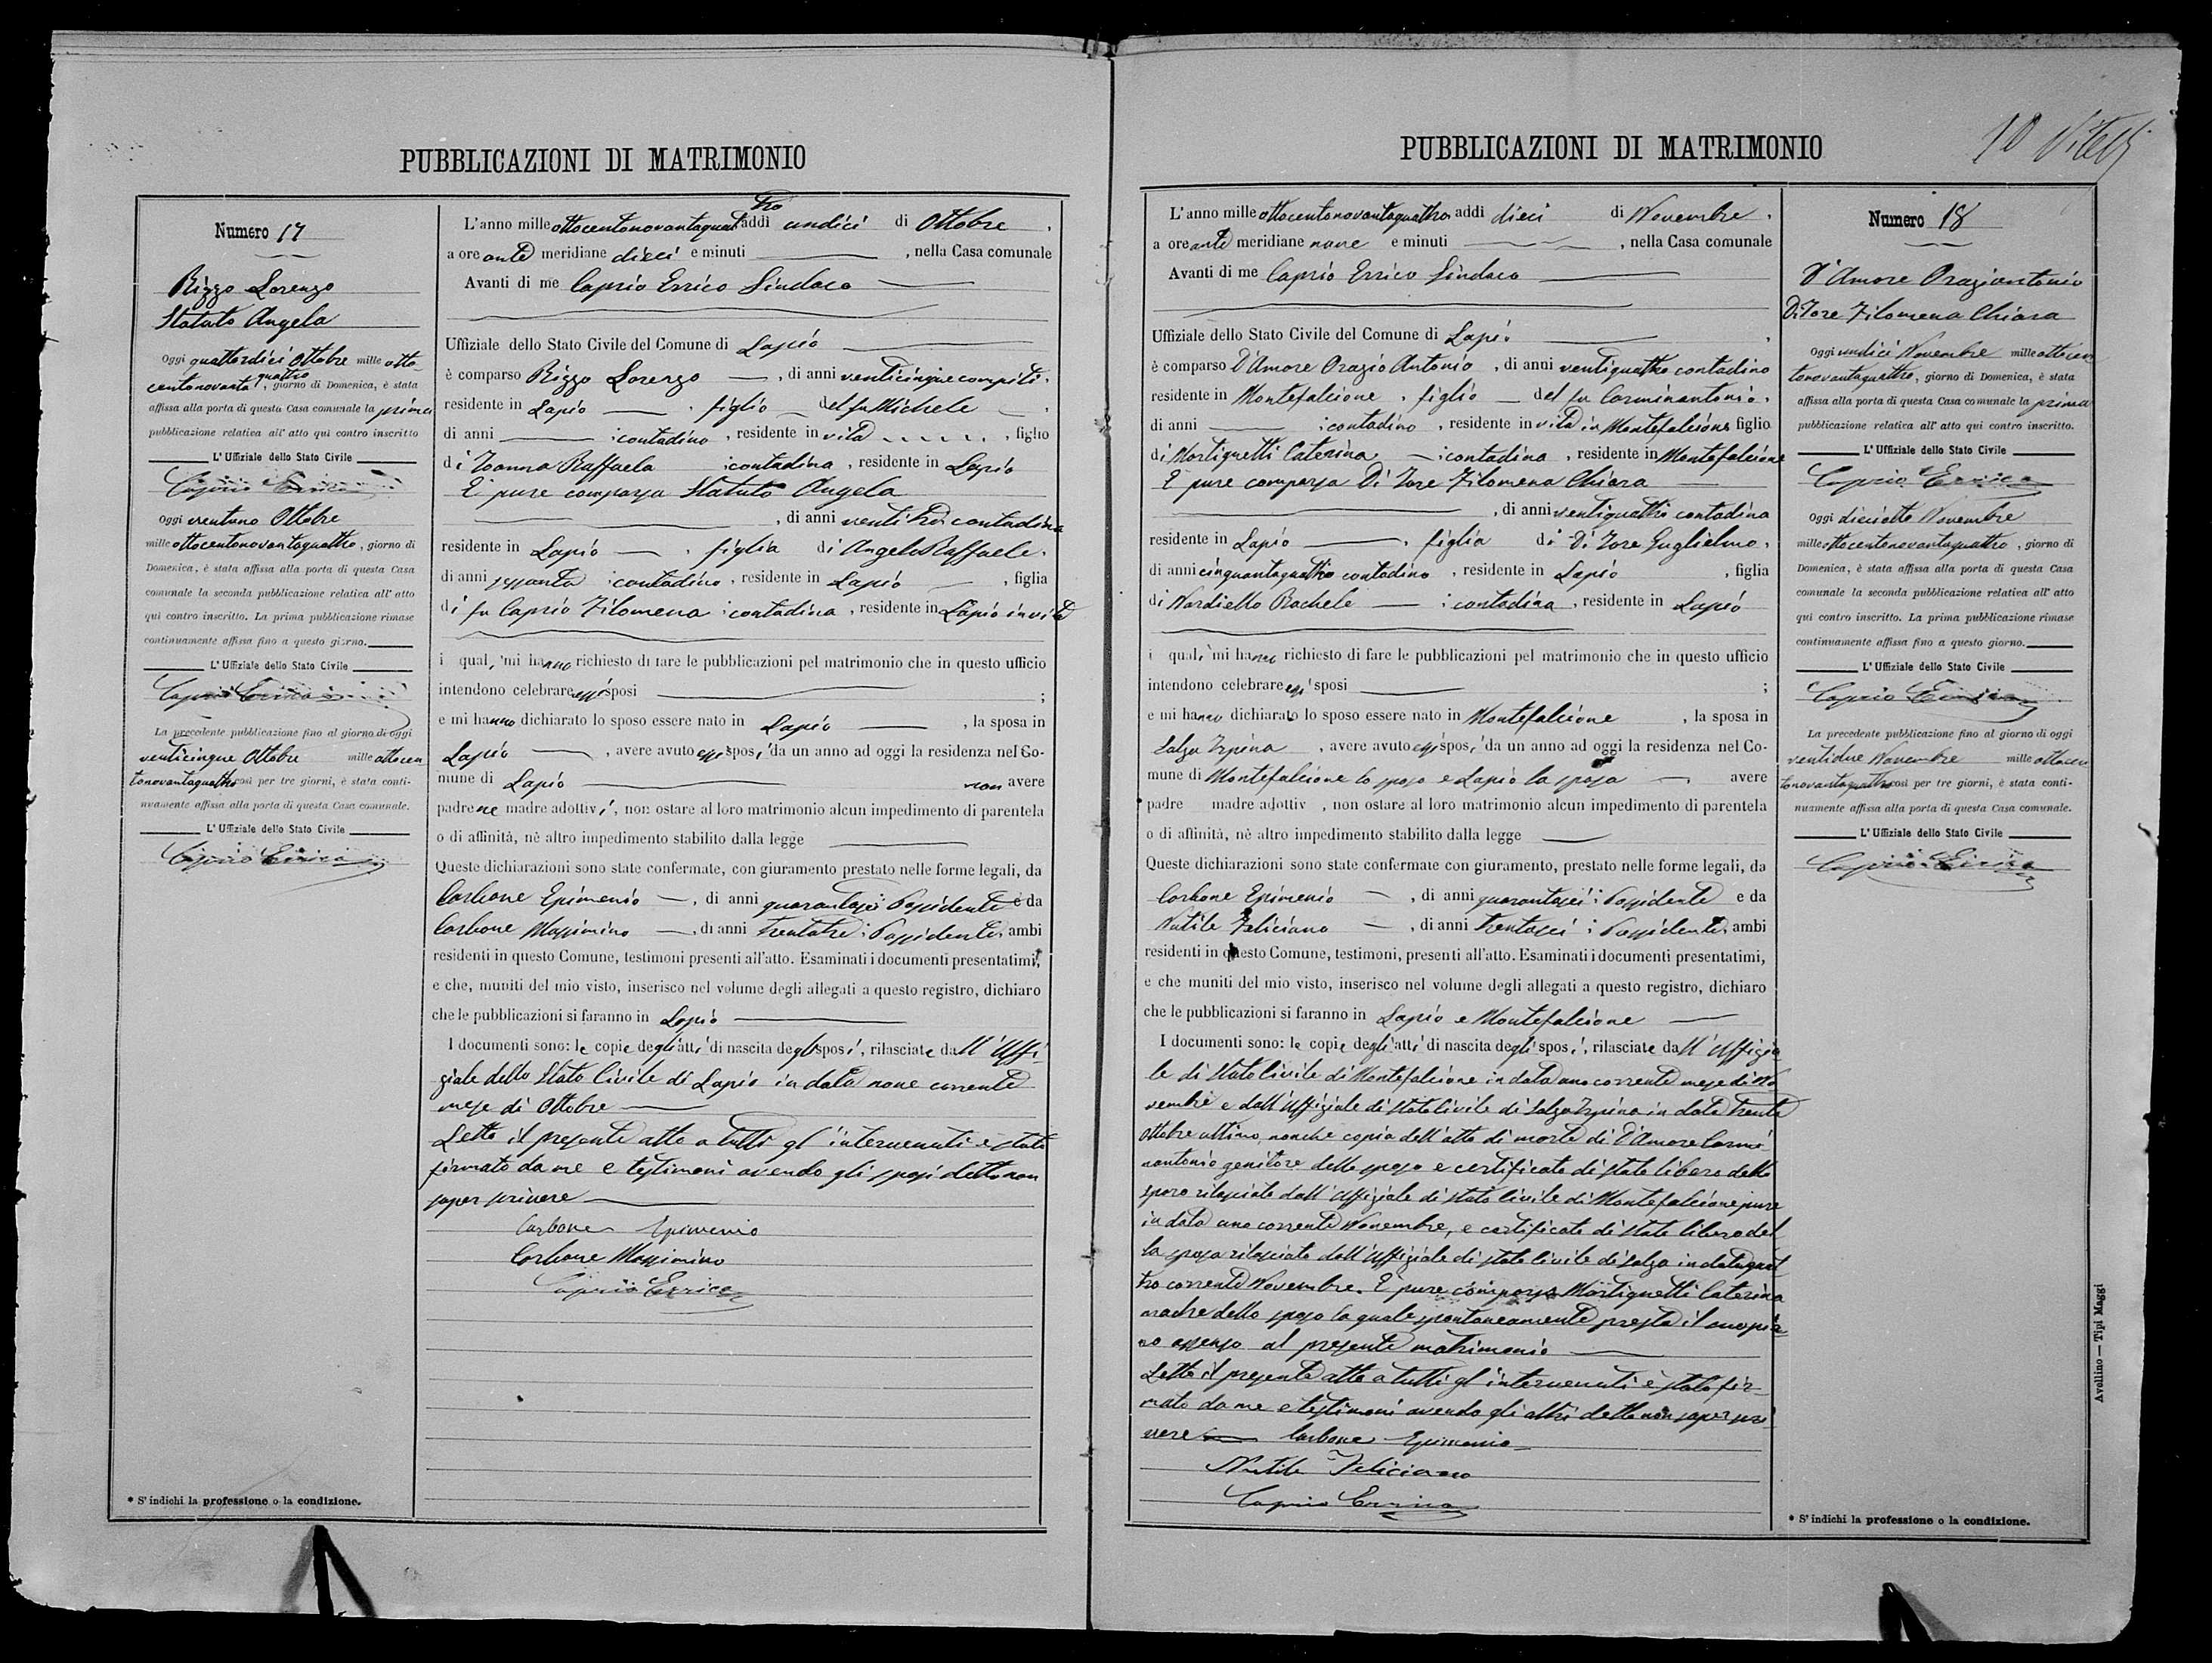 PUBBLICAZIONI DI MATRIMONIO
Numero 17
Rizzo Lorenzo
Statuto Angela
Oggi quattordici Ottobre mille otto-
centonovanta quattro, giorno di Domenica, è stata
affissa alla porta di questa Casa comunale la prima
pubblicazione relativa all' atto qui contro inscritto
L' Uffiziale dello Stato Civile
Caprio Errico
Oggi ventuno Ottobre
mille ottocentonovantaquattro, giorno di
Domenica, è stata affissa alla porta di questa Casa
comunale la seconda pubblicazione relativa all' atto
qui contro inscritto. La prima pubblicazione rimase
continuamente affissa fino a questo giorno.
L' Uffiziale dello Stato Civile
Caprio Errico
La precedente pubblicazione fino al giorno di oggi
venticinque Ottobre mille ottocen
tonovantaquattro così per tre giorni, è stata conti-
nuamente affissa alla porta di questa Casa comunale.
L' Uffiziale dello Stato Civile
Caprio Errico
* S' indichi la professione o la condizione.
L'anno mille ottocentonovantaquattro addì undici di Ottobre,
a ore ante meridiane dieci e minuti , nella Casa comunale
Avanti di me Caprio Errico Sindaco
Uffiziale dello Stato Civile del Comune di Lapio
è comparso Rizzo Lorenzo, di anni venticinque compiti,
residente in Lapio, figlio del fu Michele,
di anni contadino, residente in vita, figlio
di Ioanna Raffaela contadina, residente in Lapio
E' pure comparsa Statuto Angela
, di anni ventitre contadina
residente in Lapio, figlia di Angelo Raffaele,
di anni sessanta contadino, residente in Lapio, figlia
di fu Caprio Filomena contadina, residente in Lapio in vita
i quali mi hanno richiesto di fare le pubblicazioni pel matrimonio che in questo ufficio
intendono celebrare essi sposi ;
e mi hanno dichiarato lo sposo essere nato in Lapio, la sposa in
Lapio, avere avuto essi sposi da un anno ad oggi la residenza nel Co-
mune di Lapio non avere
padre ne madre adottivi, non ostare al loro matrimonio alcun impedimento di parentela
o di affinità, nè altro impedimento stabilito dalla legge
Queste dichiarazioni sono state confermate, con giuramento, prestato nelle forme legali, da
Carbone Epimenio, di anni quarantasei Possidente e da
Carbone Massimino, di anni trentatre Possidente, ambi
residenti in questo Comune, testimoni presenti all'atto. Esaminati i documenti presentatimi,
e che, muniti del mio visto, inserisco nel volume degli allegati a questo registro, dichiaro
che le pubblicazioni si faranno in Lapio
I documenti sono: le copie degli atti di nascita degli sposi, rilasciate dall' Uffi-
ziale dello Stato Civile di Lapio in data nove corrente
mese di Ottobre
Letto il presente atto a tutti gl' intervenuti è stato
firmato da me e testimoni avendo gli sposi detto non
saper scrivere
Carbone Epimenio
Carbone Massimino
Caprio Errico
PUBBLICAZIONI DI MATRIMONIO
10
L'anno mille ottocentonovantaquattro addì dieci di Novembre,
a ore ante meridiane nove e minuti , nella Casa comunale
Avanti di me Caprio Errico Sindaco
Uffiziale dello Stato Civile del Comune di Lapio,
è comparso D'Amore Orazio Antonio, di anni ventiquattro contadino
residente in Montefalcione, figlio del fu Carminantonio,
di anni contadino, residente in vita in Montefalcione figlio
di Martignetti Caterina contadina, residente in Montefalcione
E' pure comparsa Di Iore Filomena Chiara
, di anni ventiquattro contadina
residente in Lapio, figlia di Di Iore Guglielmo,
di anni cinquantaquattro contadino, residente in Lapio, figlia
di Nardiello Rachele contadina, residente in Lapio
i quali mi hanno richiesto di fare le pubblicazioni pel matrimonio che in questo ufficio
intendono celebrare essi sposi ;
e mi hanno dichiarato lo sposo essere nato in Montefalcione, la sposa in
Salza Irpina, avere avuto essi sposi da un anno ad oggi la residenza nel Co-
mune di Montefalcione lo sposo e Lapio la sposa avere
padre madre adottiv , non ostare al loro matrimonio alcun impedimento di parentela
o di affinità, nè altro impedimento stabilito dalla legge
Queste dichiarazioni sono state confermate con giuramento, prestato nelle forme legali, da
Carbone Epimenio, di anni quarantasei Possidente e da
Nutile Feliciano, di anni trentasei Possidente, ambi
residenti in questo Comune, testimoni, presenti all'atto. Esaminati i documenti presentatimi,
e che muniti del mio visto, inserisco nel volume degli allegati a questo registro, dichiaro
che le pubblicazioni si faranno in Lapio e Montefalcione
I documenti sono: le copie degli atti di nascita degli sposi, rilasciate dall' Uffizia
le di Stato Civile di Montefalcione in data uno corrente mese di No
vembre e dall' Uffiziale di Stato Civile di Salza Irpina in data trenta
Ottobre ultimo, nonchè copia dell' atto di morte di D'Amore Carmi-
nantonio genitore dello sposo e certificato di stato libero dello
sposo rilasciate dall' Uffiziale di Stato Civile di Montefalcione pure
in data uno corrente Novembre, e certificato di stato libero del
la sposa rilasciato dall' Uffiziale di Stato Civile di Salza in data quat
tro corrente Novembre. E' pure comparsa Martignetti Caterina
madre dello sposo la quale spontaneamente presta il suo pie
no assenso al presente matrimonio
Letto il presente atto a tutti gl' intervenuti è stato fir-
mato da me e testimoni avendo gli altri detto non saper scri
vere Carbone Epimenio
Nutile Feliciano
Caprio Errico
Numero 18
D'Amore Oraziantonio
Di Iore Filomena Chiara
Oggi undici Novembre mille ottocen
tonovantaquattro, giorno di Domenica, è stata
affissa alla porta di questa Casa comunale la prima
pubblicazione relativa all' atto qui contro inscritto.
L' Uffiziale dello Stato Civile
Caprio Errico
Oggi diciotto Novembre
mille ottocentonovantaquattro, giorno di
Domenica, è stata affissa alla porta di questa Casa
comunale la seconda pubblicazione relativa all' atto
qui contro inscritto. La prima pubblicazione rimase
continuamente affissa fino a questo giorno.
L' Uffiziale dello Stato Civile
Caprio Errico
La precedente pubblicazione fino al giorno di oggi
ventidue Novembre mille ottocen
tonovantaquattro così per tre giorni, è stata conti-
nuamente affissa alla porta di questa Casa comunale.
L' Uffiziale dello Stato Civile
Caprio Errico
* S' indichi la professione o la condizione.
Avellino — Tipi Maggi